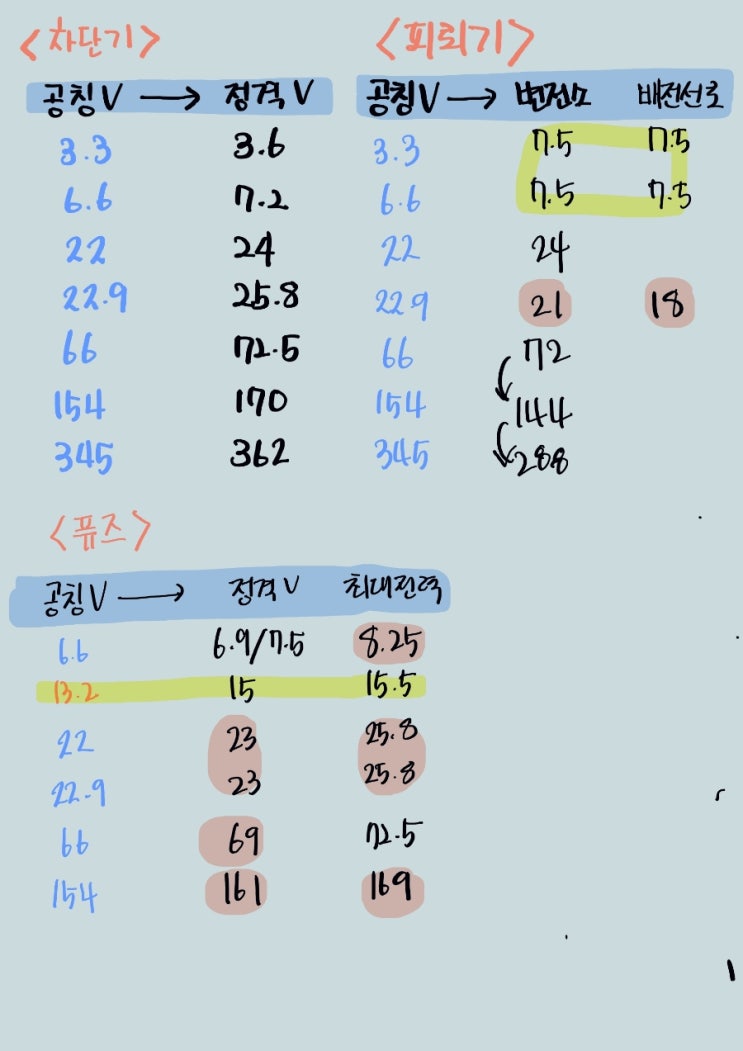 <차단기>
공칭V → 정격 V
3.3 3.6
6.6 7.2
22 24
22.9 25.8
66 72.5
154 170
345 362
<피뢰기>
공칭V → 변전소 배전선로
3.3 7.5 7.5
6.6 7.5 7.5
22 24
22.9 21 18
66 72
154 144
345 288
<퓨즈>
공칭V → 정격 V 최대전력
6.6 6.9/7.5 8.25
13.2 15 15.5
22 23 25.8
22.9 23 25.8
66 69 72.5
154 161 169